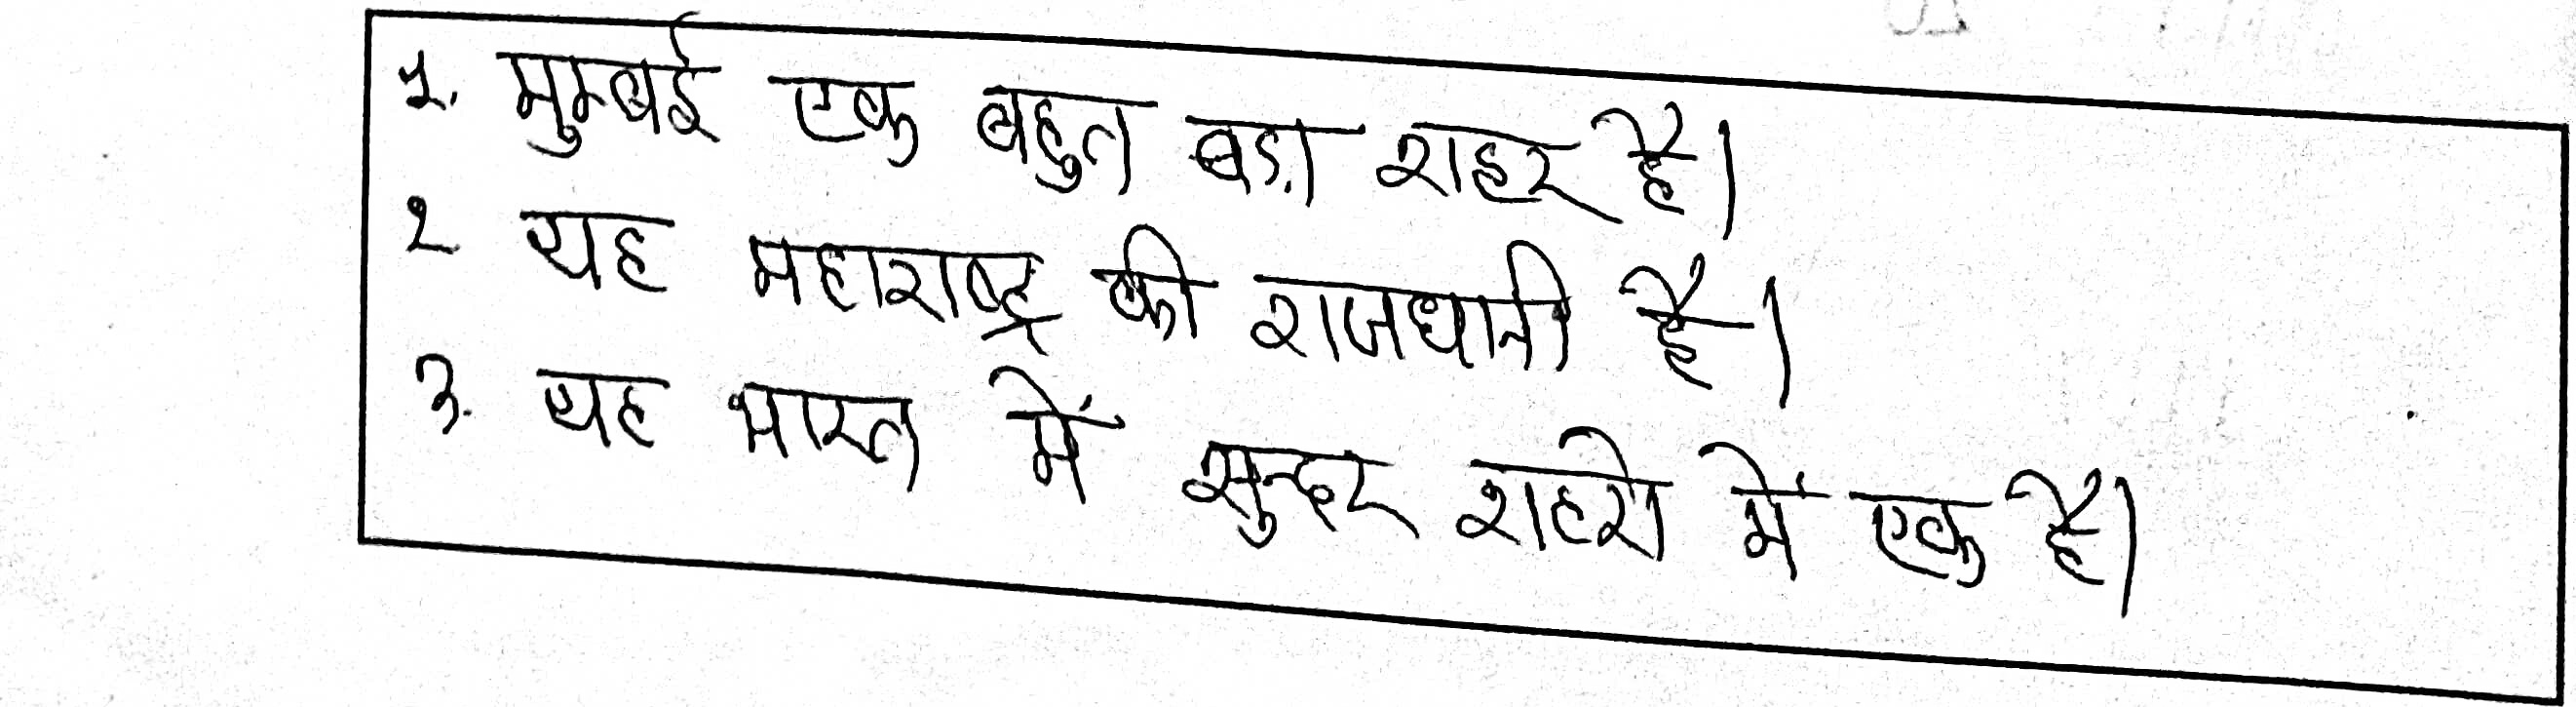 १. मुम्बई एक बहुत बड़ा शहर है।
२ यह महाराष्ट्र की राजधानी है।
३. यह भारत में सुन्दर शहरो में एक है।